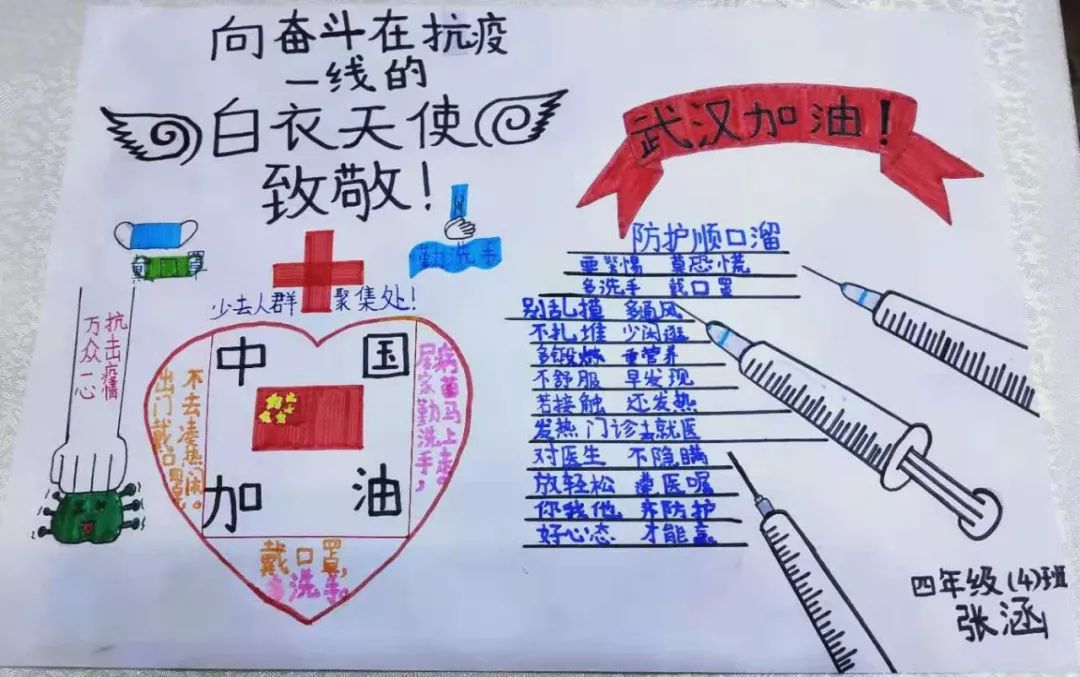 向奋斗在抗疫
一线的
白衣天使
致敬！
武汉加油！
勤洗手
少去人群 聚集处！
抗击疫情
万众一心
中国
加油
不去凑热闹。
出门戴口罩，
病菌马上走。
居家勤洗手，
戴口罩，
多洗手。
防护顺口溜
要警惕 莫恐慌
多洗手 戴口罩
别乱摸 多通风
不扎堆 少闲逛
多锻炼 重营养
不舒服 早发现
若接触 还发热
发热门诊去就医
对医生 不隐瞒
放轻松 遵医嘱
你我他 齐防护
好心态 才能赢
四年级(4)班
张涵